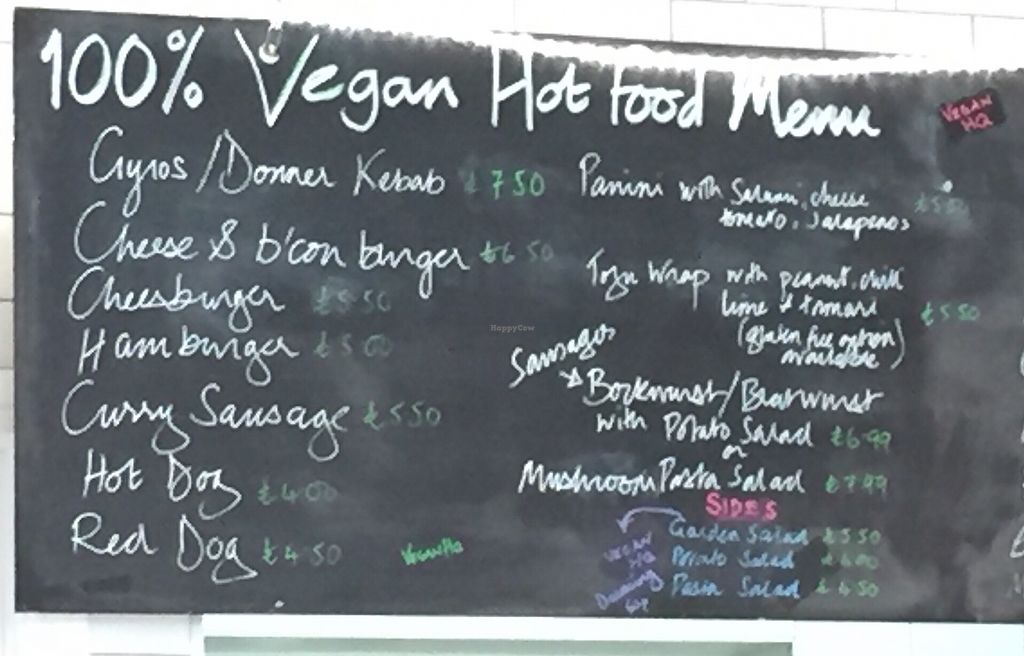 100% Vegan Hot Food Menu
VEGAN
HQ
Gyros / Donner Kebab £7 50
Cheese & b'con burger £6 50
Cheesburger £5 50
Hamburger £5 00
Curry Sausage £5 50
Hot Dog £4 00
Red Dog £4 50
Vegan HQ
Panini with Salami, cheese
tomato, Jalapenos
Tofu Wrap with peanut, chilli
lime & tamari £5 50
(gluten free option
available)
Sausages
Bockwurst/Bratwurst
with Potato Salad £6.99
or
Mushroom Pasta Salad £7.99
SIDES
Garden Salad £5 50
Potato Salad
Pasta Salad £4 50
VEGAN
HQ
HappyCow